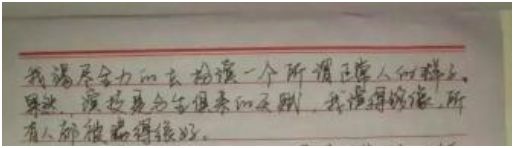 我竭尽全力的去扮演一个所谓正常人的样子。
果然，演技是与生俱来的天赋，我演得够像，所
有人都被骗得很好。